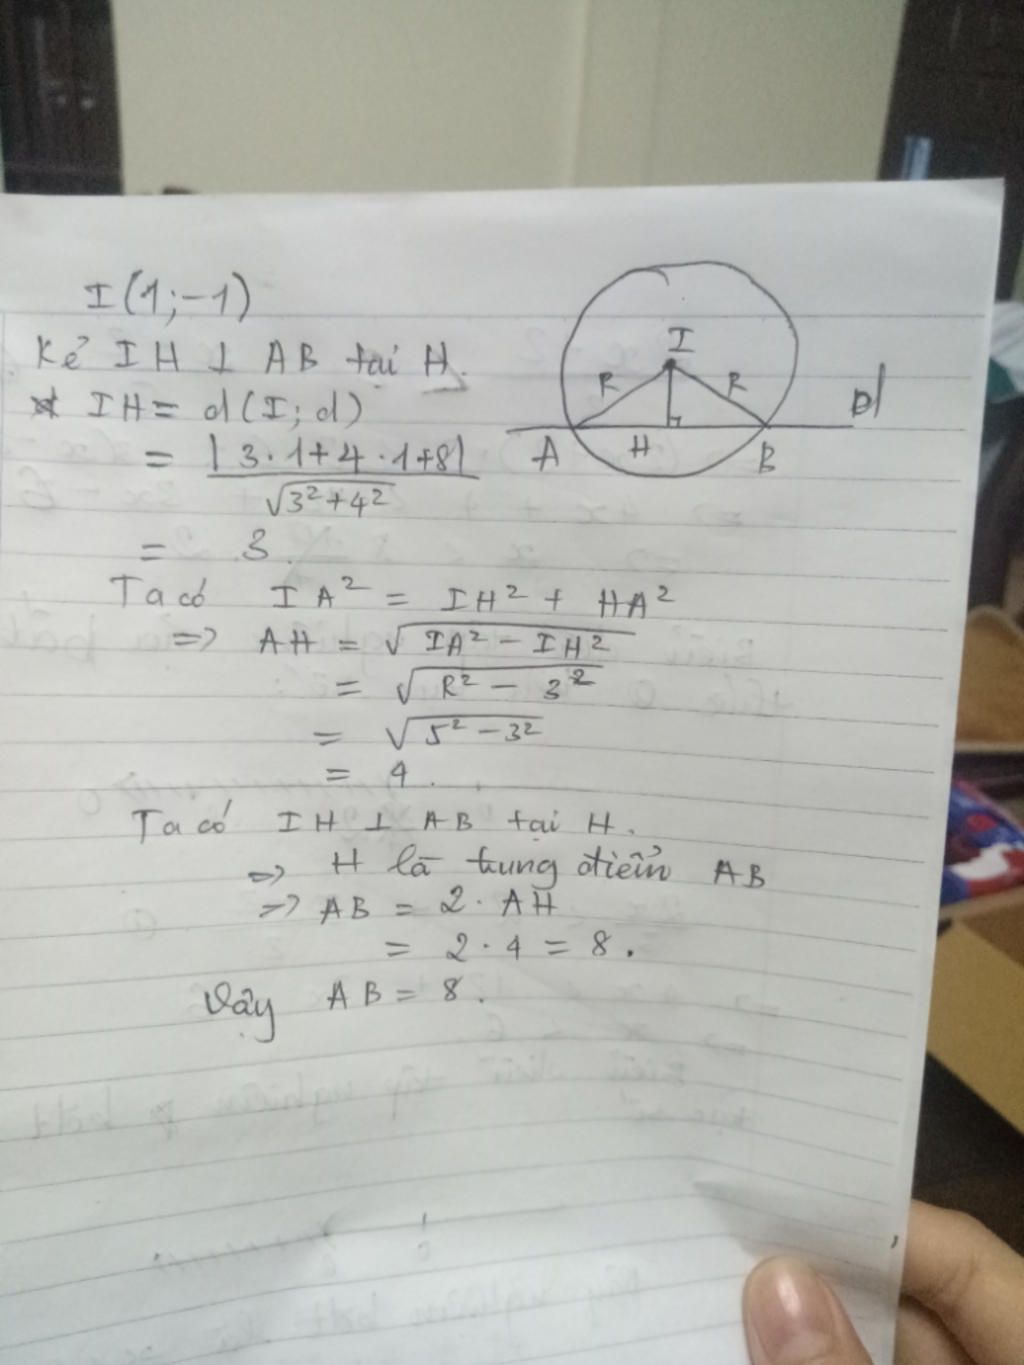 I(1;-1)
Kẻ IH ⊥ AB tại H.
IH = d(I; d)
= |3·1+4·1+8| / √3²+4²
= 3.
Ta có IA² = IH² + HA²
=> AH = √IA² - IH²
= √R² - 3²
= √5² - 3²
= 4.
Ta có IH ⊥ AB tại H.
=> H là trung điểm AB
=> AB = 2. AH
= 2 · 4 = 8.
Vậy AB = 8.
I
R R
d
A H B